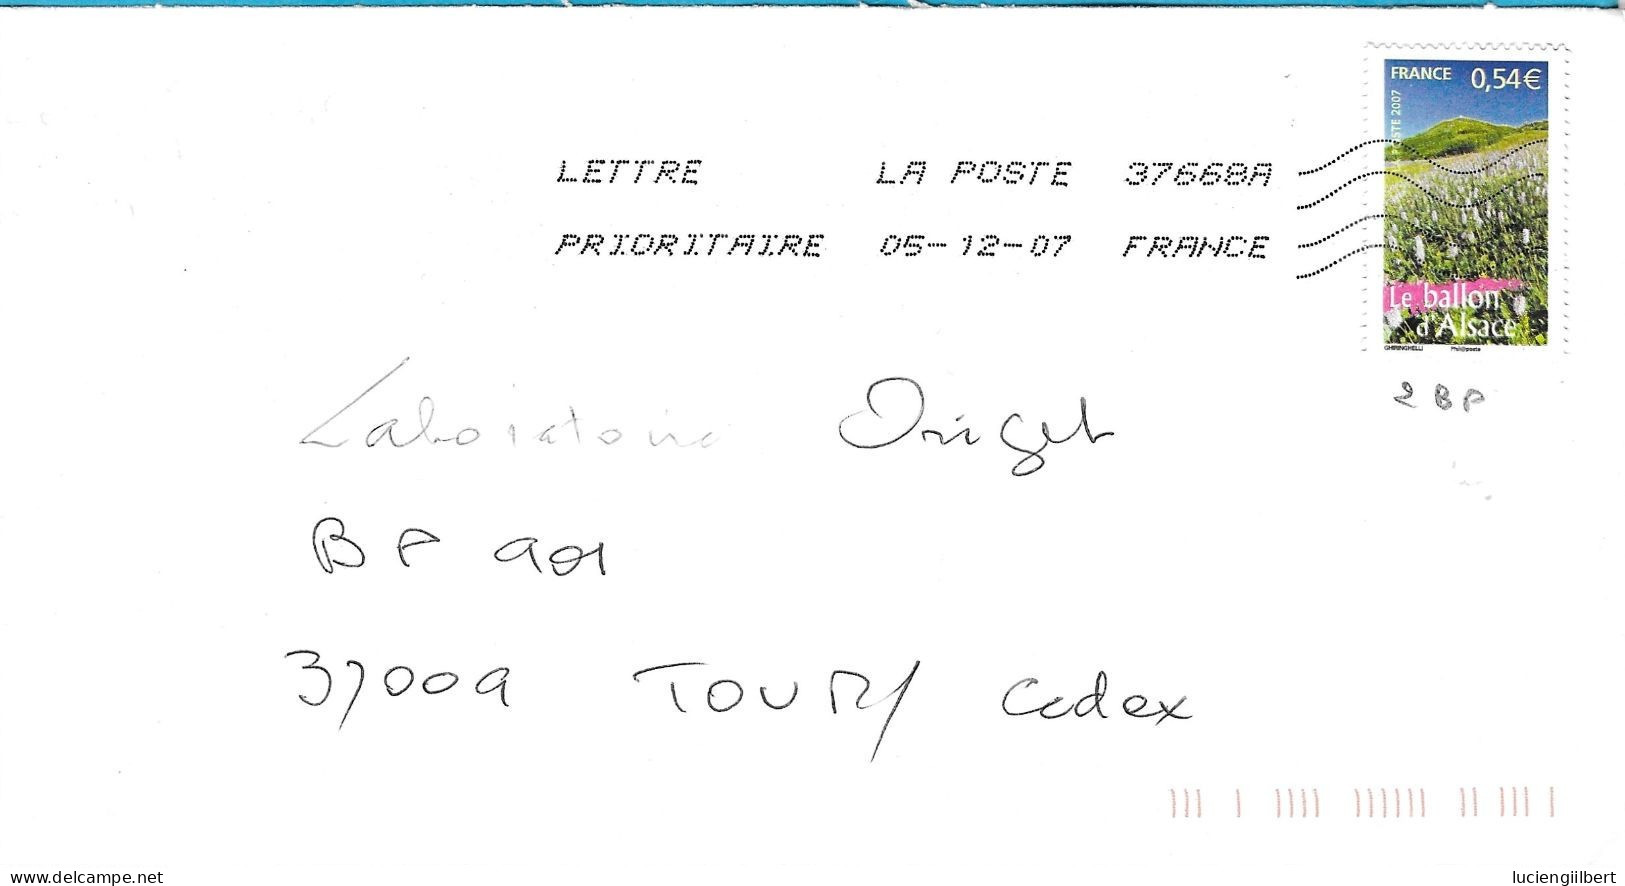 FRANCE 0,54€
LA POSTE 2007
LETTRE LA POSTE 37668A
PRIORITAIRE 05-12-07 FRANCE
Le ballon
d'Alsace
GHIRINGHELLI Phil@poste
2 BP
Laboratoire Origet
BP 901
37009 TOURS Cedex
www.delcampe.net
luciengilbert